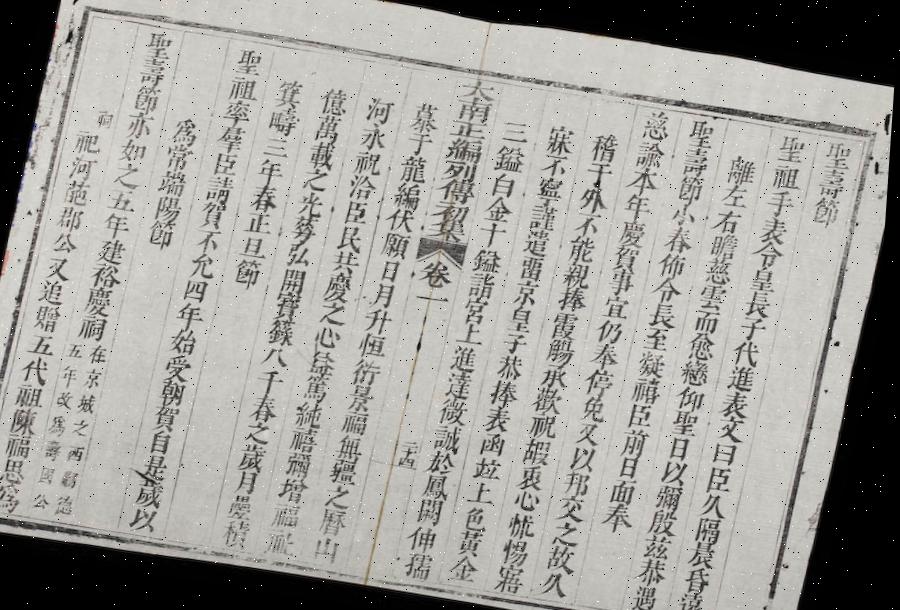 聖壽節
聖祖手表令皇長子代進表文曰臣久隔晨昏遠
離左右瞻慈雲而愈戀仰聖日以彌殷茲恭遇
聖壽節小春佈令長至凝禧臣前日面奉
慈諭本年慶賀事宜仍奉停免又以邦交之故久
稽于外不能親捧霞觴承歡祝嘏衷心怵惕寤
寐不寧謹遣留京皇子恭捧表函並上色黃金
三鎰白金十鎰詣宮上進達微誠於鳳闕伸孺
大南正編列傳初集 卷一 二十四
慕于龍編伏願日月升恒衍景福無疆之曆山
河永祝洽臣民共慶之心益篤純禧彌增福祉
億萬載之光華弘開寶籙八千春之歲月疊積
箕疇三年春正旦節
聖祖率羣臣請賀不允四年始受朝賀自是歲以
為常端陽節
聖壽節亦如之五年建裕慶祠在京城之西鄰德
祠祀河葩郡公又追贈五代祖陳福思為
五年改為壽國公